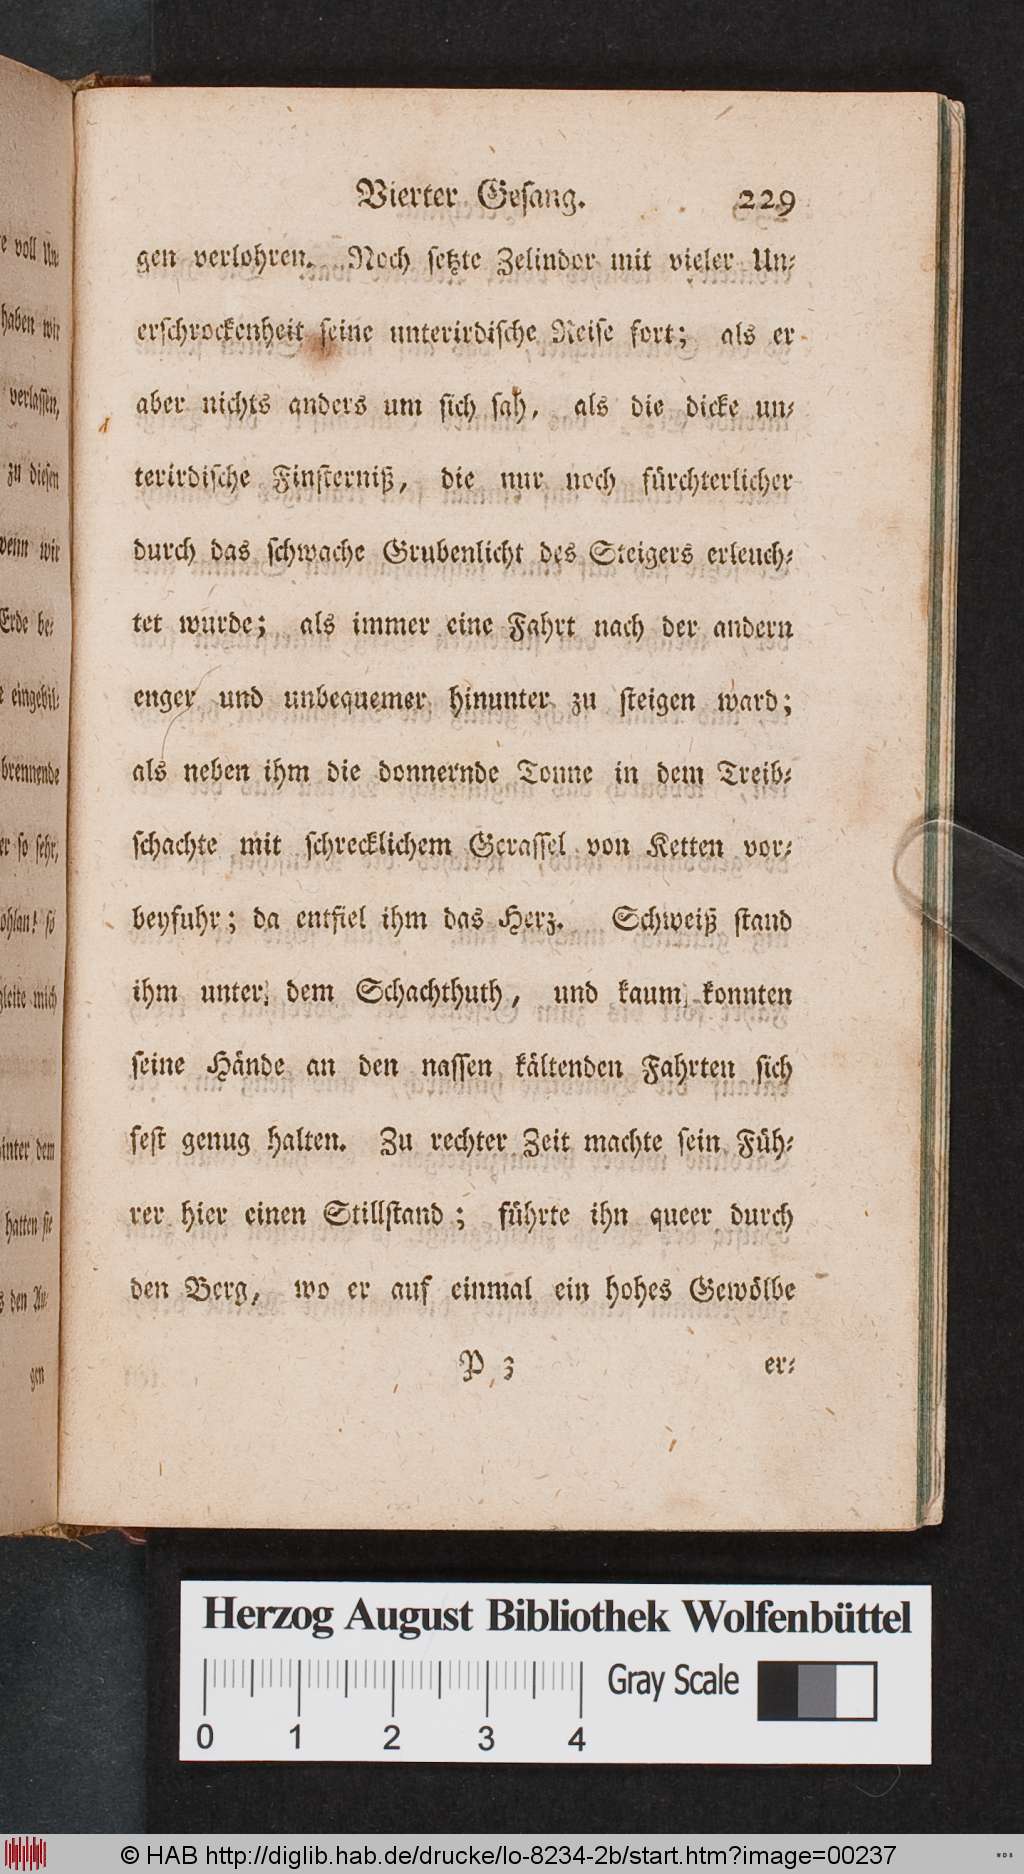 e voll Un⸗
haben wir
verlassen,
zu diesen
wenn wir
Erde be⸗
e eingebil⸗
brennende
er so sehr,
ohlan! so
gleite mich
hinter dem
hatten sie
s den Au⸗
gen
Vierter Gesang. 229
gen verlohren. Noch setzte Zelindor mit vieler Un⸗
erschrockenheit seine unterirdische Reise fort; als er
aber nichts anders um sich sah, als die dicke un⸗
terirdische Finsterniß, die nur noch fürchterlicher
durch das schwache Grubenlicht des Steigers erleuch⸗
tet wurde; als immer eine Fahrt nach der andern
enger und unbequemer hinunter zu steigen ward;
als neben ihm die donnernde Tonne in dem Treib⸗
schachte mit schrecklichem Gerassel von Ketten vor⸗
beyfuhr; da entfiel ihm das Herz. Schweiß stand
ihm unter dem Schachthuth, und kaum konnten
seine Hände an den nassen kältenden Fahrten sich
fest genug halten. Zu rechter Zeit machte sein Füh⸗
rer hier einen Stillstand; führte ihn queer durch
den Berg, wo er auf einmal ein hohes Gewölbe
P 3 er⸗
Herzog August Bibliothek Wolfenbüttel
Gray Scale
0 1 2 3 4
© HAB http://diglib.hab.de/drucke/lo-8234-2b/start.htm?image=00237